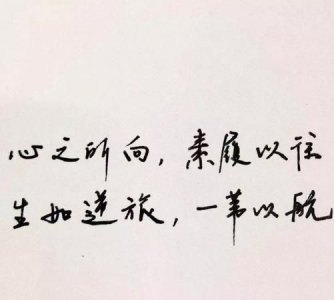 心之所向，素履以往
生如逆旅，一苇以航